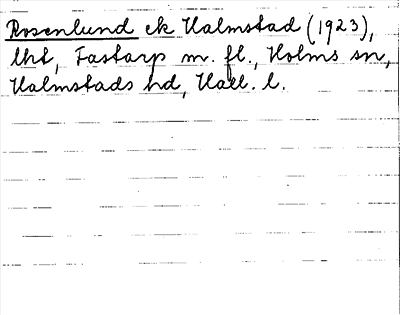 Rosenlund ek Halmstad (1923),
lht, Fastarp m. fl., Holms sn,
Halmstads hd, Hall. l.